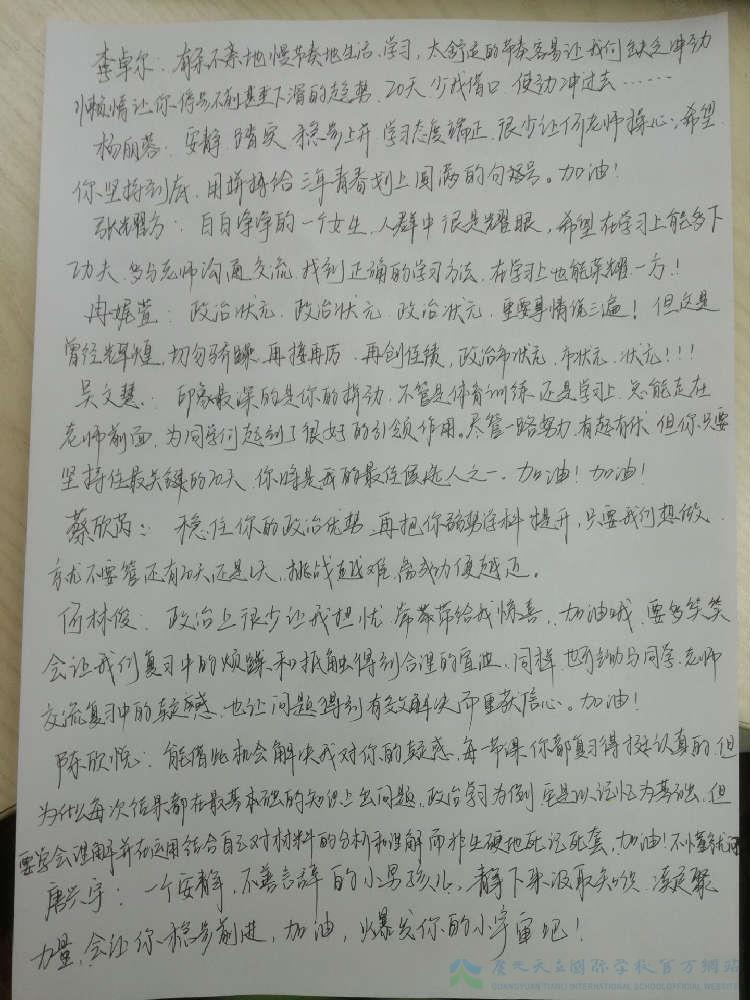 李卓尔：有条不紊地慢节奏地生活、学习，太舒适的节奏容易让我们缺乏冲动
惰让你停步不前甚至下滑的趋势，20天少找借口，使劲冲过去……
杨丽蓉：安静、踏实、稳步上升，学习态度端正，很少让何老师操心；希望
你坚持到底，用拼搏给三年青春划上圆满的句号。加油！
张耀方：白白净净的一个女生，人群中很是耀眼，希望在学习上能多下
功夫，多与老师沟通交流，找到正确的学习方法，在学习上也能荣耀一方！
冉娓萱：政治状元、政治状元、政治状元，重要事情说三遍！但这是
曾经辉煌，切勿骄躁，再接再厉，再创佳绩，政治市状元、市状元、状元！！！
吴文慧：印象最深的是你的拼劲，不管是体育训练还是学习上，总能走在
老师前面，为同学们起到了很好的引领作用。尽管一路努力，有起有伏，但你只要
坚持住最关键的20天，你将是我的最佳候选人之一，加油！加油！
蔡欣芮：稳住你的政治优势，再把你弱势学科提升，只要我们想做
就不要管还有20天还是1天，挑战越难，离成功便越近。
何林俊：政治上很少让我担忧，常常带给我惊喜，加油哦，要多笑笑
会让我们复习中的烦躁和抵触得到合理的宣泄，同样，也可主动与同学、老师
交流复习中的疑惑，也让问题得到有效解决而重获信心。加油！
陈欣悦：能借此机会解决我对你的疑惑，每一节课你都复习得挺认真的，但
为什么每次结果都在最基本础的知识上出问题，政治学习为例，更是以记忆为基础，但
要学会理解并在运用结合自己对材料的分析和理解而非生硬地死记死套，加油！不懂多问
唐兴宇：一个安静，不善言辞的小男孩儿，静下来汲取知识，凝聚
力量，会让你稳步前进，加油，爆发你的小宇宙吧！
广元天立国际学校官方网站
GUANGYUAN TIANLI INTERNATIONAL SCHOOLOFFICIAL WEBSITE